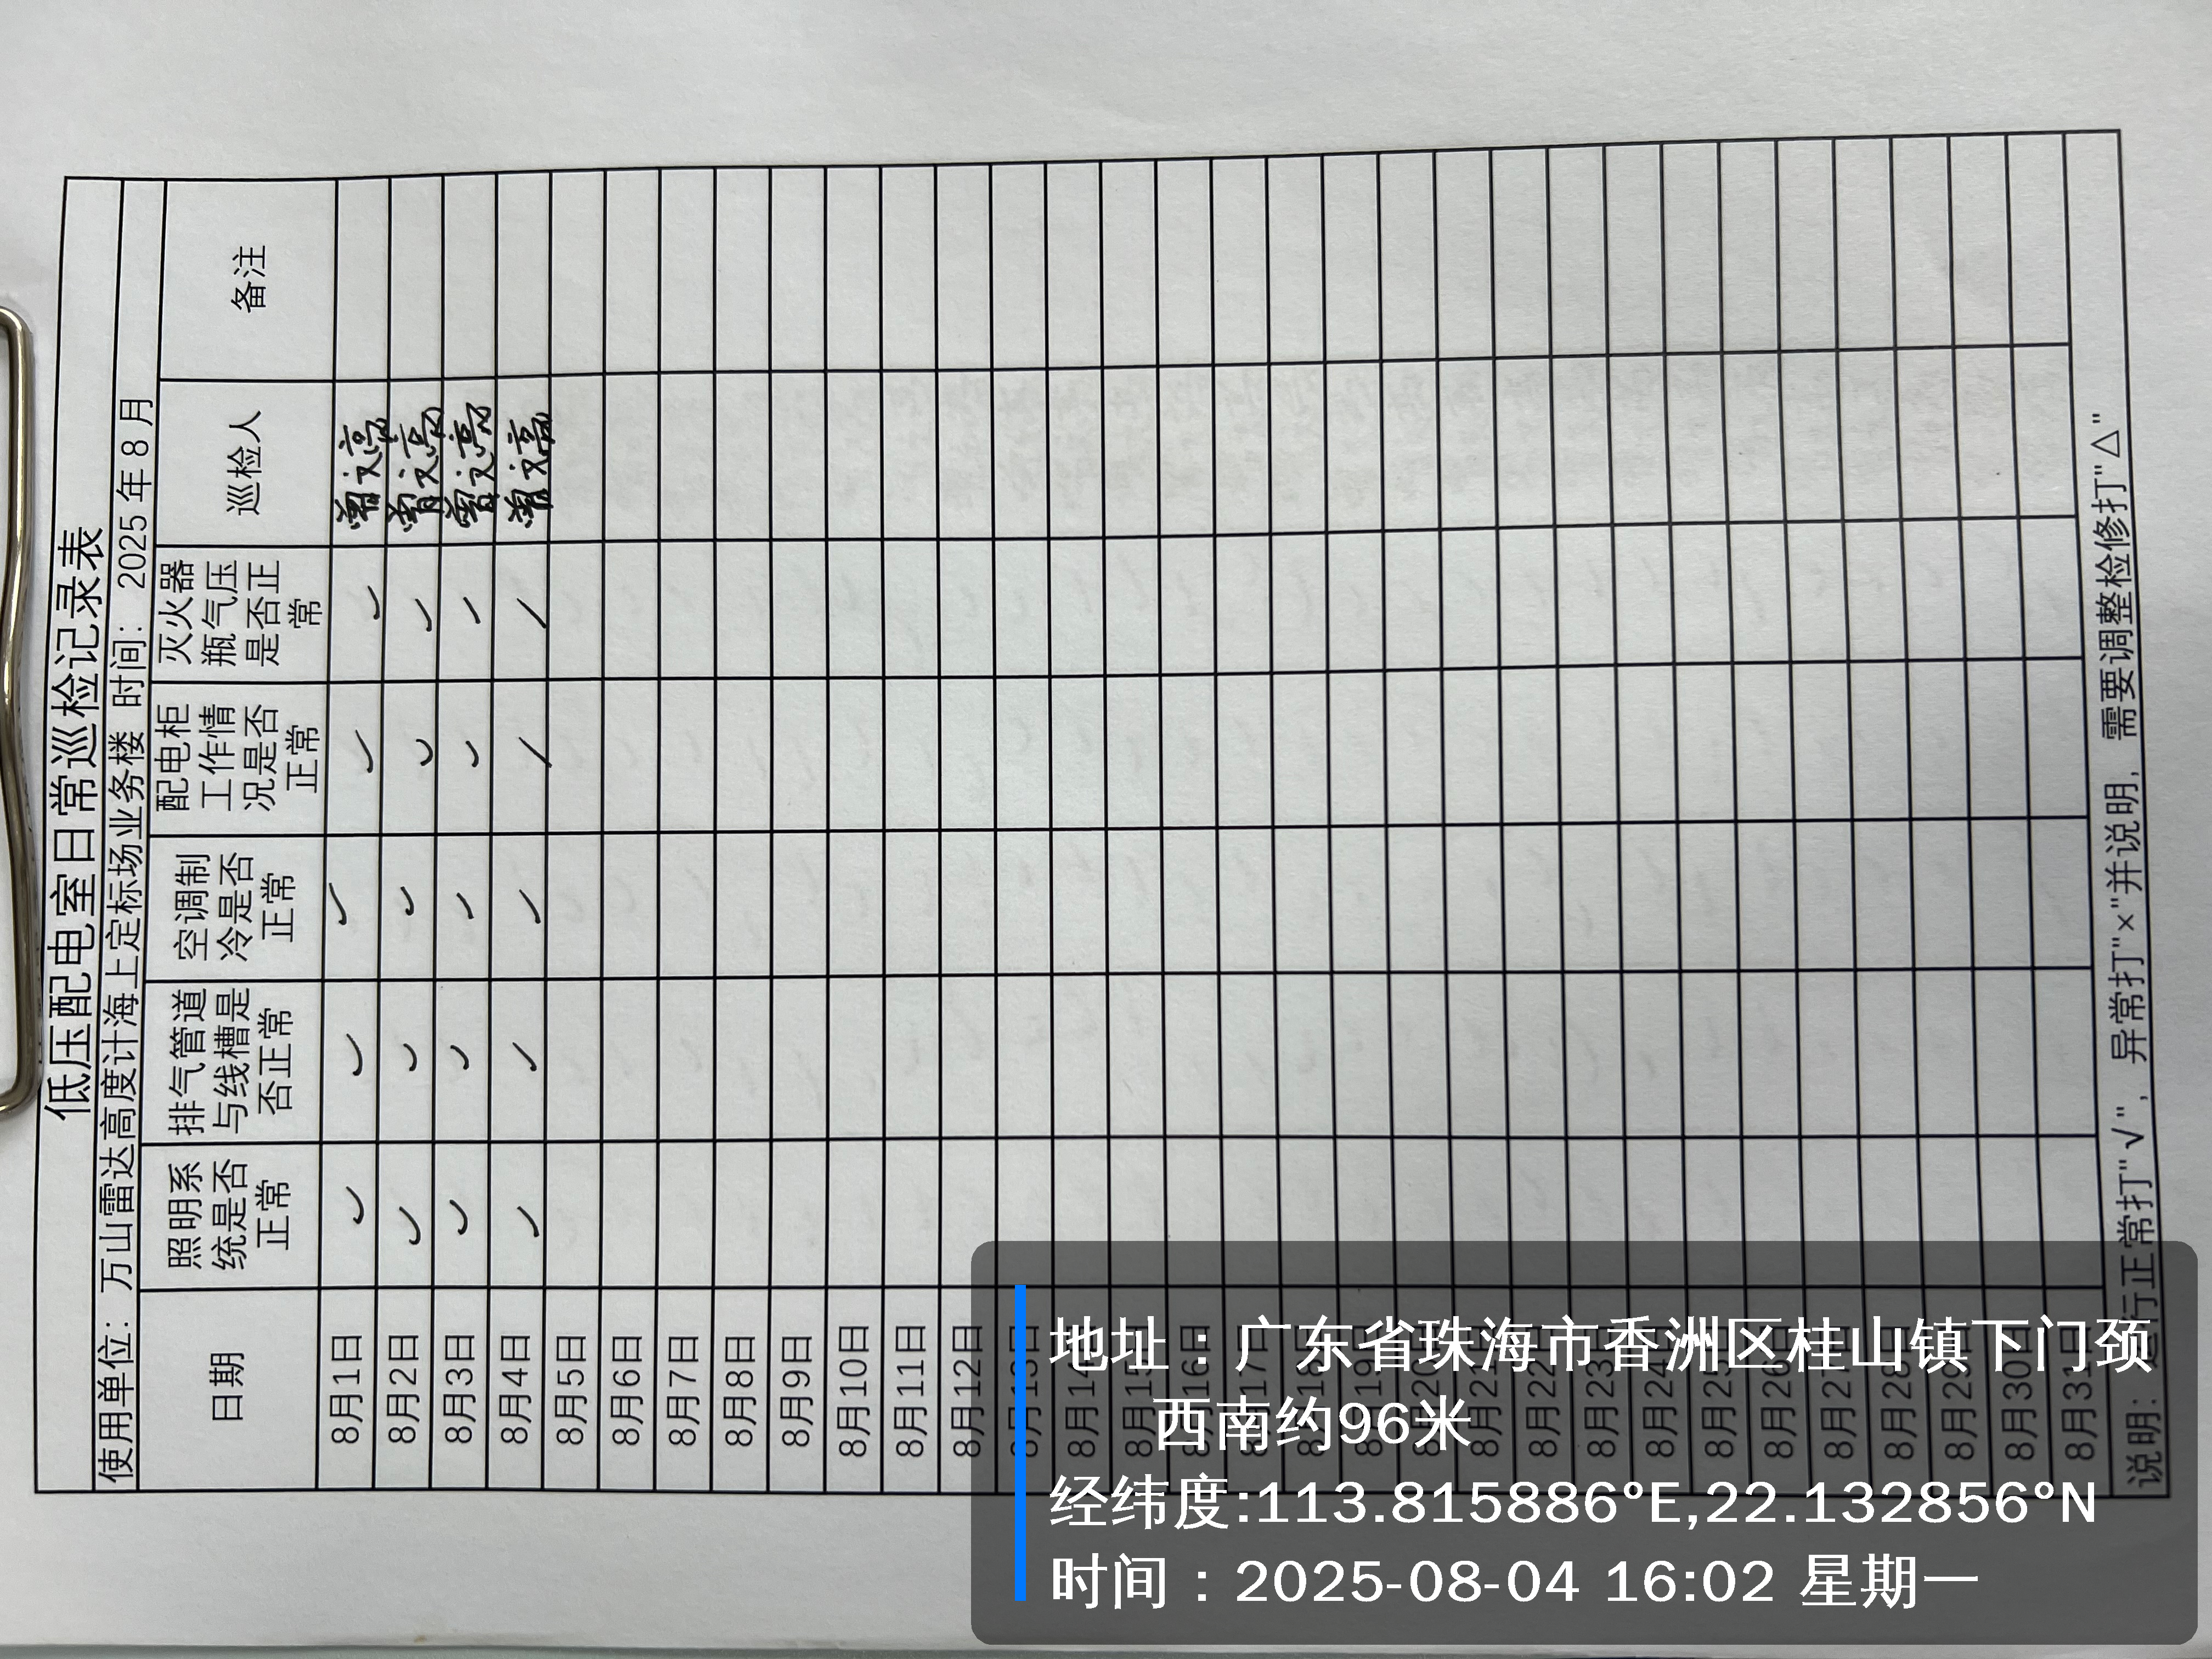 低压配电室日常巡检记录表
使用单位：万山雷达高度计海上定标场业务楼 时间：2025年8月
日期 照明系统是否正常 排气管道与线槽是否正常 空调制冷是否正常 配电柜工作情况是否正常 灭火器瓶气压是否正常 巡检人 备注
8月1日 ✓ ✓ ✓ ✓ ✓ 曾文亮
8月2日 ✓ ✓ ✓ ✓ ✓ 曾文亮
8月3日 ✓ ✓ ✓ ✓ ✓ 曾文亮
8月4日 ✓ ✓ ✓ ✓ ✓ 曾文亮
8月5日
8月6日
8月7日
8月8日
8月9日
8月10日
8月11日
8月12日
8月13日
8月14日
8月15日
8月16日
8月17日
8月18日
8月19日
8月20日
8月21日
8月22日
8月23日
8月24日
8月25日
8月26日
8月27日
8月28日
8月29日
8月30日
8月31日
说明：运行正常打"√"，异常打"×"并说明，需要调整检修打"△"
地址：广东省珠海市香洲区桂山镇下门颈
西南约96米
经纬度:113.815886°E,22.132856°N
时间：2025-08-04 16:02 星期一